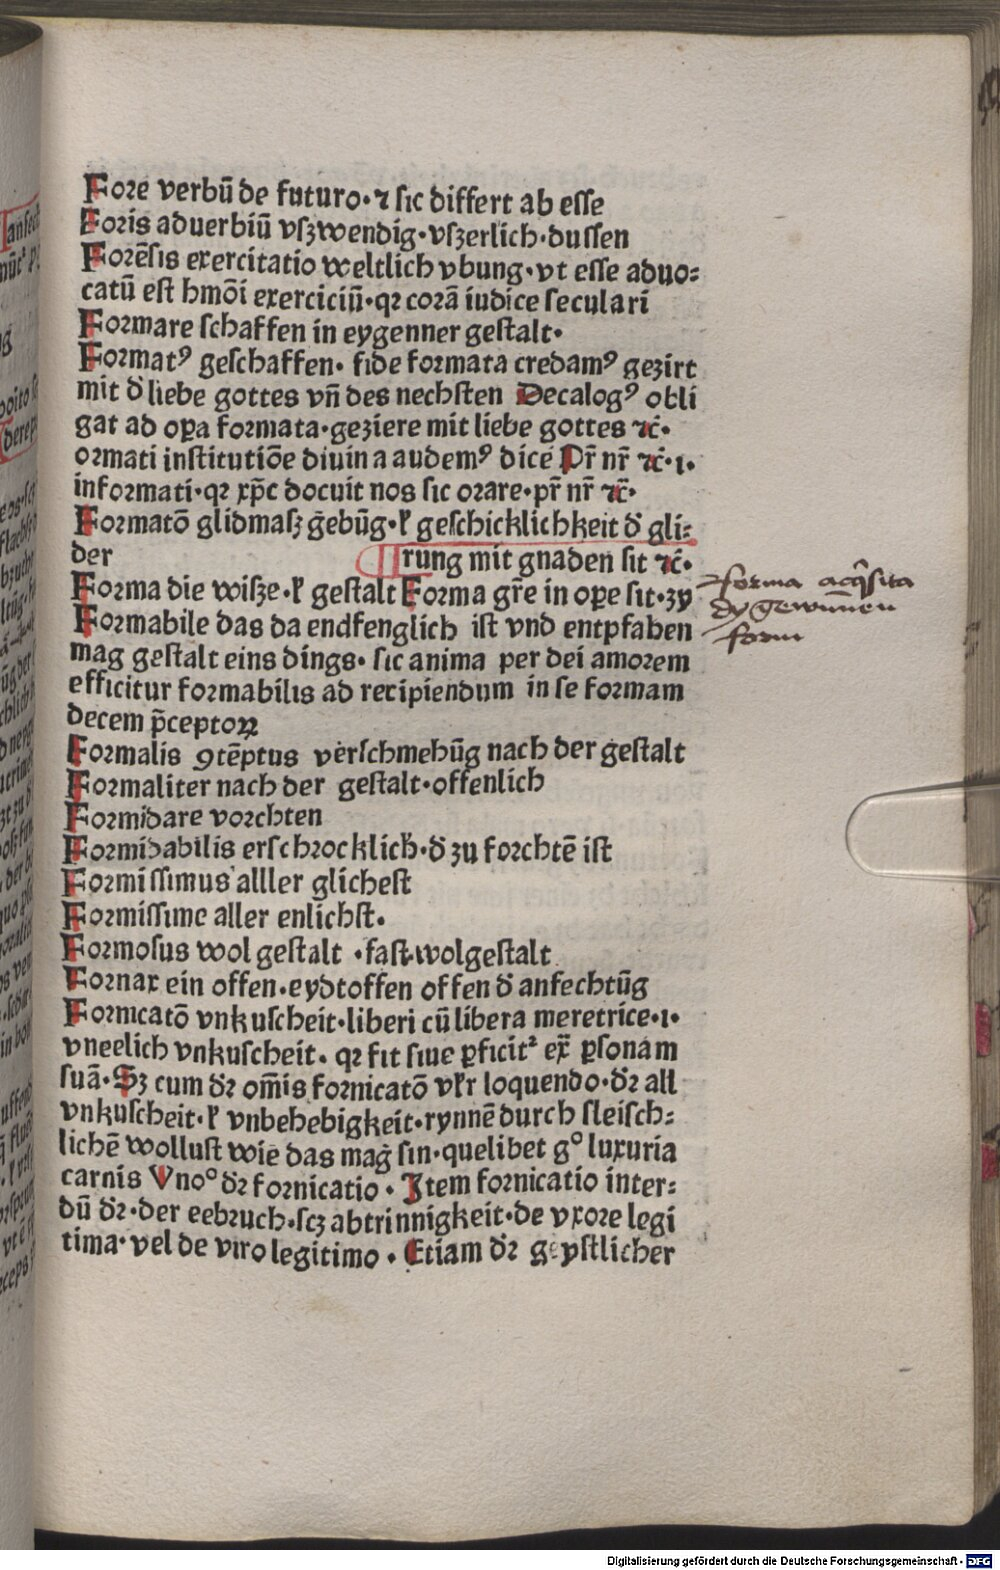 Fore verbū de futuro·⁊ sic differt ab esse
Foris aduerbiū vſzwendig·vſzerlich·duſſen
Forēsis exercitatio weltlich vbung·vt esse aduo⸗
catū est hmōi exerciciū·qꝛ corā iudice seculari
Formare schaffen in eygenner gestalt·
Formatꝰ geschaffen· fide formata credamꝰ gezirt
mit d̄ liebe gottes vn̄ des nechsten Decalogꝰ obli
gat ad oꝑa formata·geziere mit liebe gottes ⁊c̄·
ormati institutiōe diuina audemꝰ dicē Pr̄ nr̄ ⁊c̄·i·
informati·qꝛ xp̄c docuit nos sic orare·pr̄ nr̄ ⁊c̄·
Formatō glidmaſz gebūg·ł geschicklichkeit d̄ gli⸗
der
rung mit gnaden sit ⁊c̄·
Forma die wiſze·ł gestalt Forma gr̄e in oꝑe sit·zy
Formabile das da endfenglich ist vnd entpfahen
mag gestalt eins dings· sic anima per dei amorem
efficitur formabilis ad recipiendum in se formam
decem p̄ceptoꝝ
Formalis ꝯtēptus verschmehūg nach der gestalt
Formaliter nach der gestalt·offenlich
Formidare vorchten
Formidabilis erschrocklich·d̄ zu forchtē ist
Formissimus alller glichest
Formissime aller enlichst·
Formosus wol gestalt ·fast wolgestalt
Fornax ein offen·eydtoffen offen d̄ anfechtūg
Fornicatō vnkuscheit·liberi cū libera meretrice·i·
vneelich vnkuscheit· qꝛ fit siue ꝑficit᷒ ex̄ ꝑsonam
suā·Sꝫ cum dr̄ om̄is fornicatō vłr loquendo·dr̄ all
vnkuscheit·ł vnbehebigkeit·rynnē durch fleisch⸗
lichē wollust wie das mag sin·quelibet gᵒ luxuria
carnis Vnoᵒ dr̄ fornicatio · Item fornicatio inter⸗
dū dr̄·der eebruch·scꝫ abtrinnigkeit·de vxore legi
tima·vel de viro legitimo · Etiam dr̄ geystlicher
forma acq̄sita
dy gewunnen
form
Digitalisierung gefördert durch die Deutsche Forschungsgemeinschaft · DFG